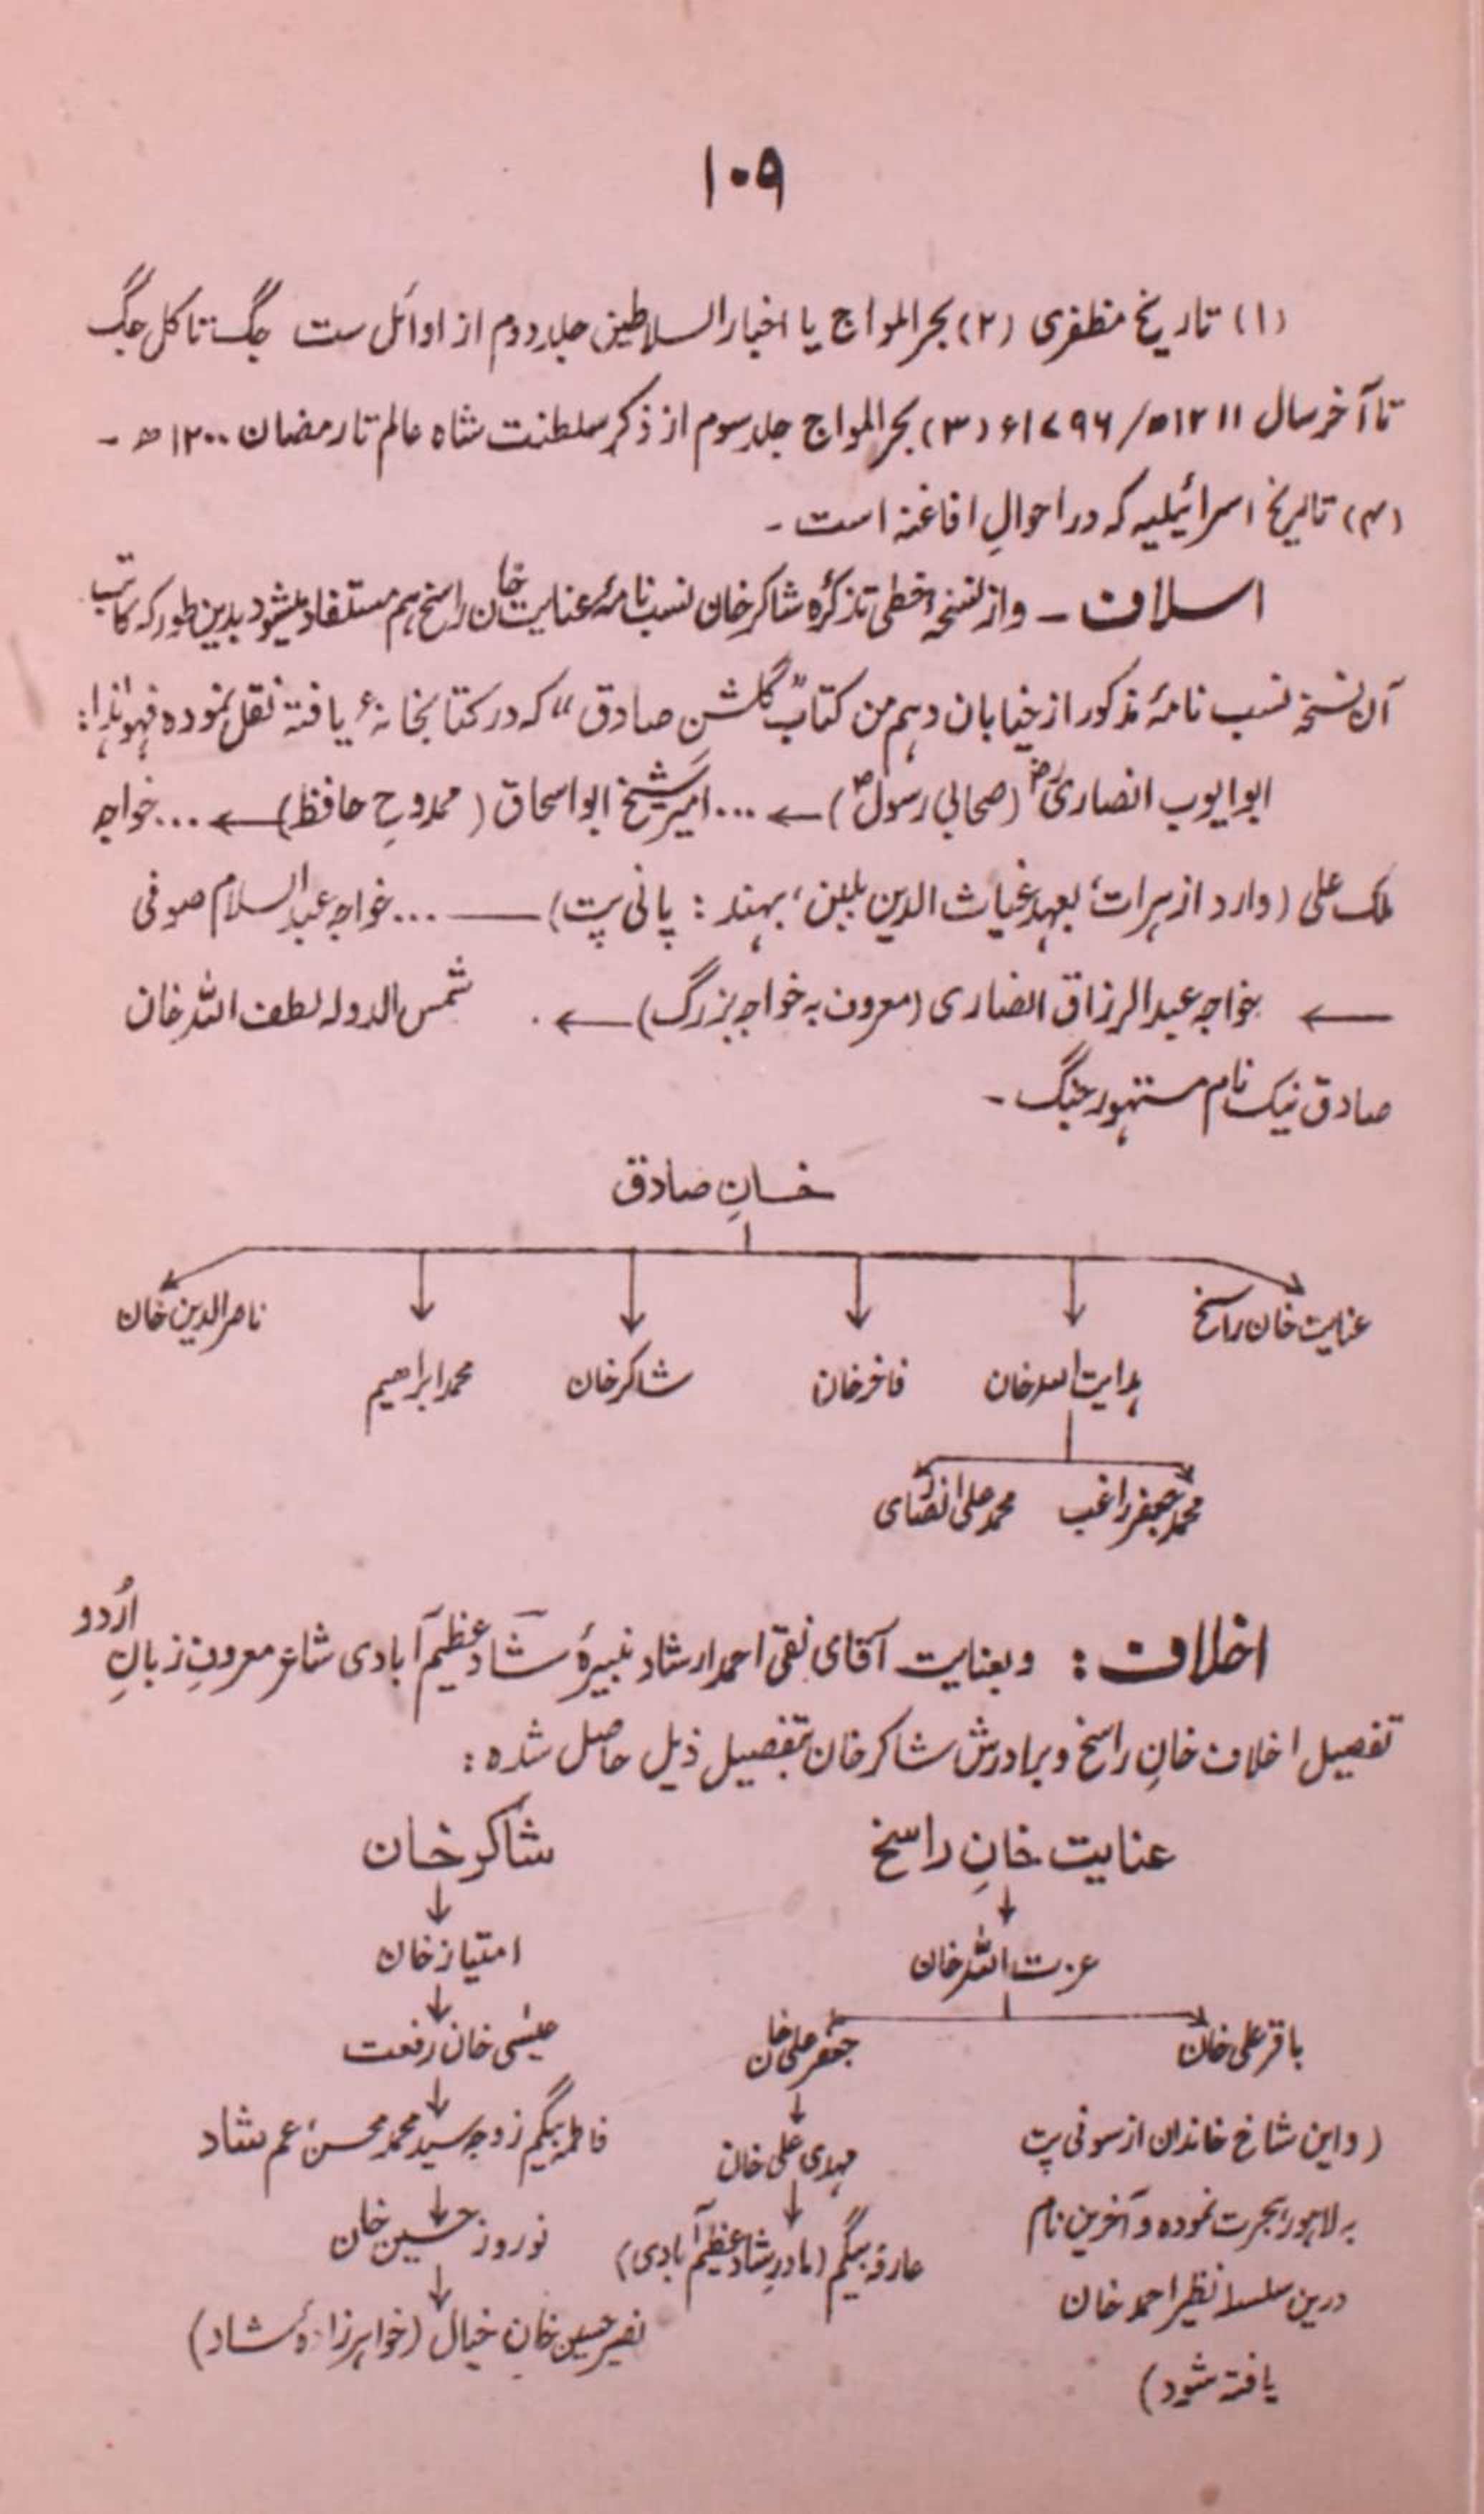 ۱۰۹
(۱) تاریخ مظفری (۲) بحر المواج یا اخبار السلاطین جلد دوم از اوائل ست جگ تا کل جگ
تا آخر سال ۱۲۱۱ھ/۱۷۹۶ء (۳) بحر المواج جلد سوم از ذکر سلطنت شاہ عالم تا رمضان ۱۲۰۰ھ -
(۴) تاریخ اسرائیلیہ کہ در احوالِ افاغنہ است -
اسلاف - و از نسخہ خطی تذکرۂ شاکر خان نسب نامۂ عنایت خان راسخ ہم مستفاد میشود بدین طور کہ کاتب
آن نسخہ نسب نامۂ مذکور از خیابان دہم من کتاب "گلشن صادق" کہ در کتابخانہء یافتہ نقل نمودہ فہو ہٰذا:
ابو ایوب انصاریؓ (صحابی رسولؐ) ← ... امیر شیخ ابو اسحاق (ممدوحِ حافظ) ← ... خواجہ
ملک علی (وارد از ہرات، بعہد غیاث الدین بلبن، بہند: پانی پت) — ... خواجہ عبد السلام صوفی
← خواجہ عبد الرزاق انصاری (معروف بہ خواجہ بزرگ) ← . شمس الدولہ لطف اللہ خان
صادق نیک نام متہور جنگ -
خانِ صادق
عنایت خان راسخ
ہدایت اللہ خان
فاخر خان
شاکر خان
محمد ابراھیم
ناصر الدین خان
محمد جعفر راغب
محمد علی انصاری
اخلاف: و بعنایت آقای نقی احمد ارشاد نبیرۂ شاد عظیم آبادی شاعر معروفِ زبانِ اُردو
تفصیل اخلاف خانِ راسخ و برادرش شاکر خان بتفصیل ذیل حاصل شدہ:
عنایت خانِ راسخ
↓
عزت اللہ خان
باقر علی خان
(و این شاخ خاندان از سونی پت
بہ لاہور ہجرت نمودہ و آخرین نام
درین سلسلہ نظیر احمد خان
یافتہ شود)
جعفر علی خان
↓
مہدی علی خان
↓
عارفہ بیگم (مادرِ شاد عظیم آبادی)
شاکر خان
↓
امتیاز خان
↓
عیسٰی خان رفعت
↓
فاطمہ بیگم زوجہ سید محمد محسن، عم شاد
↓
نوروز حسین خان
↓
نصیر حسین خان خیال (خواہر زادۂ شاد)